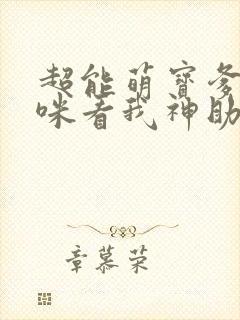 超能萌宝爹
咪看我神助
章慕荣